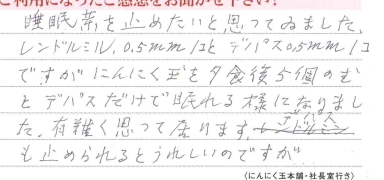 ご利用になったご感想をお聞かせ下さい!
睡眠薬を止めたいと思ってゐました。
レンドルミル、0.5mm/コとデパス0.5mm/コ
ですがにんにく玉を夕食後5個のむ
とデパスだけで眠れる様になりまし
た。有難く思って居ります。デパス
も止められるとうれしいのですが
(にんにく玉本舗・社長室行き)